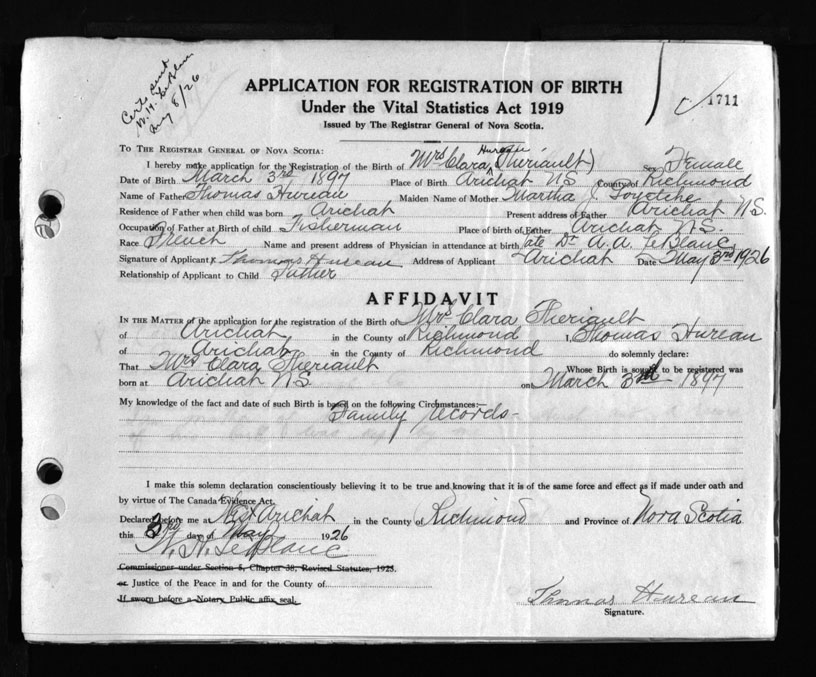 Certs sent
W.H. LeBlanc
Aug 8/26
APPLICATION FOR REGISTRATION OF BIRTH
Under the Vital Statistics Act 1919
Issued by The Registrar General of Nova Scotia.
1711
TO THE REGISTRAR GENERAL OF NOVA SCOTIA:
I hereby make application for the Registration of the Birth of Mrs Clara Hureau Theriault) Sex Female
Date of Birth March 3rd 1897 Place of Birth Arichat NS County of Richmond
Name of Father Thomas Hureau Maiden Name of Mother Martha J.
Residence of Father when child was born Arichat Present address of Father Arichat N.S.
Occupation of Father at Birth of child Fisherman Place of birth of Father Arichat N.S.
Race French Name and present address of Physician in attendance at birth late Dr. A.A. LeBlanc
Signature of Applicant x Thomas Hureau Address of Applicant Arichat Date May 3rd 1926
Relationship of Applicant to Child Father
AFFIDAVIT
IN THE MATTER of the application for the registration of the Birth of Mrs Clara Theriault
of Arichat in the County of Richmond I, Thomas Hureau
of Arichat in the County of Richmond do solemnly declare:
That Mrs Clara Theriault Whose Birth is sought to be registered was
born at Arichat NS on March 3rd 1897
My knowledge of the fact and date of such Birth is based on the following Circumstances:
Family records-
I make this solemn declaration conscientiously believing it to be true and knowing that it is of the same force and effect as if made under oath and
by virtue of The Canada Evidence Act.
Declared before me at West Arichat in the County of Richmond and Province of Nova Scotia
this 3rd day of May 1926
W. H. LeBlanc
Commissioner under Section 5, Chapter 38, Revised Statutes, 1923.
or Justice of the Peace in and for the County of
If sworn before a Notary Public affix seal.
Thomas Hureau
Signature.